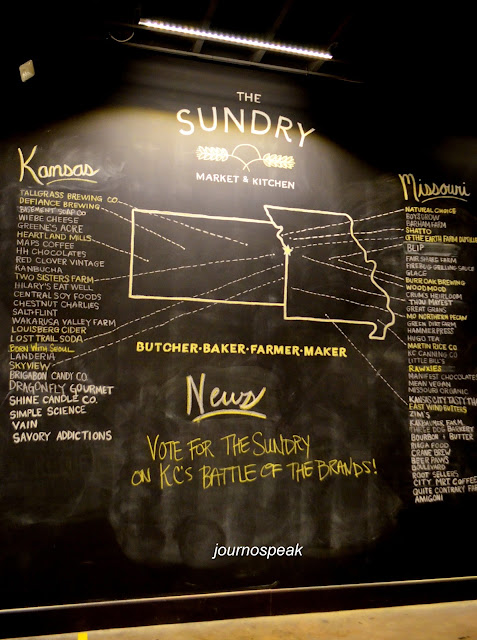 THE
SUNDRY
MARKET & KITCHEN
Kansas
TALLGRASS BREWING CO
DEFIANCE BREWING
BASEMENT SOAP CO
WIEBE CHEESE
GREENE'S ACRE
HEARTLAND MILLS
MAPS COFFEE
HH CHOCOLATES
RED CLOVER VINTAGE
KANBUCHA
TWO SISTERS FARM
HILARY'S EAT WELL
CENTRAL SOY FOODS
CHESTNUT CHARLIES
SALT+FLINT
WAKARUSA VALLEY FARM
LOUISBERG CIDER
LOST TRAIL SODA
BORN WITH SEOUL
LANDERIA
SKYVIEW
BRIGABON CANDY CO.
DRAGONFLY GOURMET
SHINE CANDLE CO.
SIMPLE SCIENCE
VAIN
SAVORY ADDICTIONS
Missouri
NATURAL CHOICE
BOYS GROW
BARHAM FARM
SHATTO
OF THE EARTH FARM DISTILLE
BLIP
FAIR SHARE FARM
FIREBUG GRILLING SAUCE
GLACE
BURR OAK BREWING
WOODMOOD
CRUM'S HEIRLOOM
THOU MAYEST
GREAT GRAINS
MO NORTHERN PECAN
GREEN DIRT FARM
HAMMERPRESS
HUGO TEA
MARTIN RICE CO
KC CANNING CO
LITTLE BILL'S
RAWXIES
MANIFEST CHOCOLATES
MEAN VEGAN
MISSOURI ORGANIC
KANSAS CITY TASTY
EAST WIND BUTTERS
ZIM'S
FARM
THREE DOG BAKERY
BOURBON + BUTTER
FOOD
CRANE BREW
BEER PAWS
BOULEVARD
ROOT SELLERS
CITY MRT COFFEE
QUITE CONTRARY FA
AMIGONI
BUTCHER·BAKER·FARMER·MAKER
News
VOTE FOR THE SUNDRY
ON KC'S BATTLE OF THE BRANDS!
journospeak